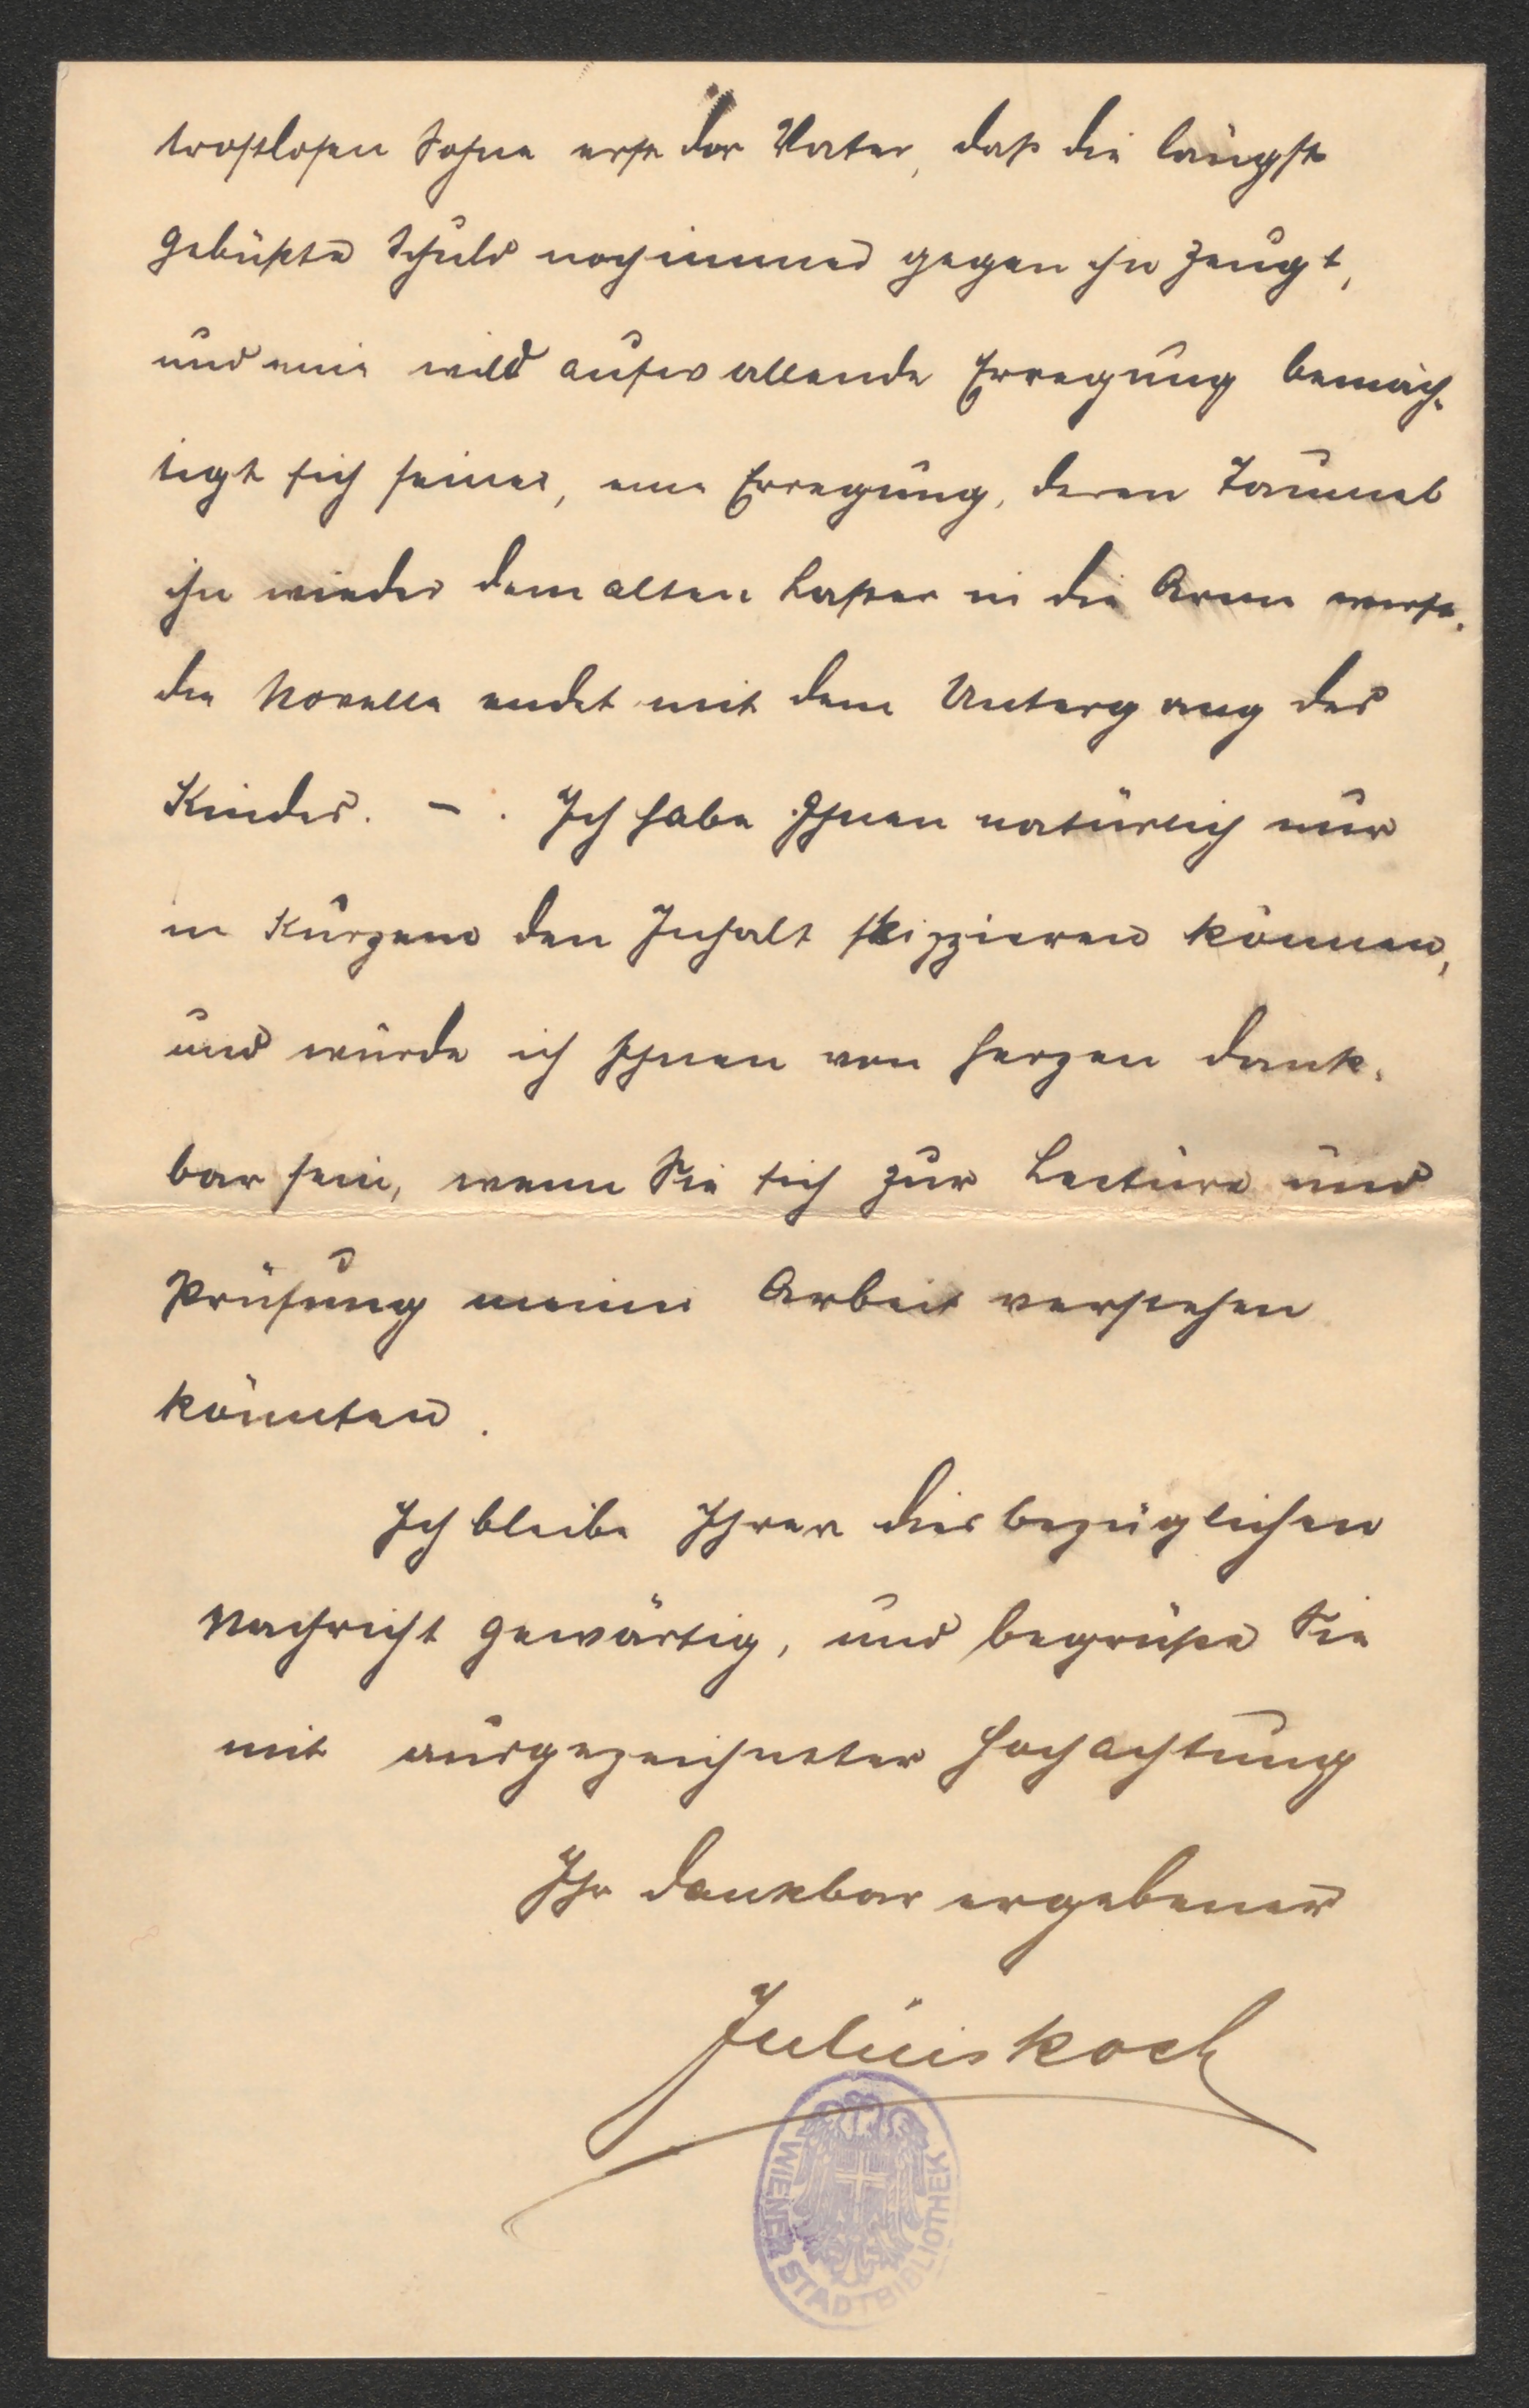 trostlosen Sohne erst der Vater, daß die längst
gebüßte Schuld noch immer gegen ihn zeugt,
und eine wild aufwallende Erregung bemäch-
tigt sich seiner, eine Erregung, deren Taumel
ihn wieder dem alten Laster in die Arme wirft.
Die Novelle endet mit dem Untergang des
Kindes. – . Ich habe Ihnen natürlich nur
in Kurzem den Inhalt skizzieren können,
und würde ich Ihnen von Herzen dank-
bar sein, wenn Sie sich zur Lectüre und
Prüfung meiner Arbeit verstehen
könnten.
Ich bleibe Ihrer diesbezüglichen
Nachricht gewärtig, und begrüße Sie
mit ausgezeichneter Hochachtung
Ihr dankbar ergebener
Julius Koch
WIENER STADTBIBLIOTHEK